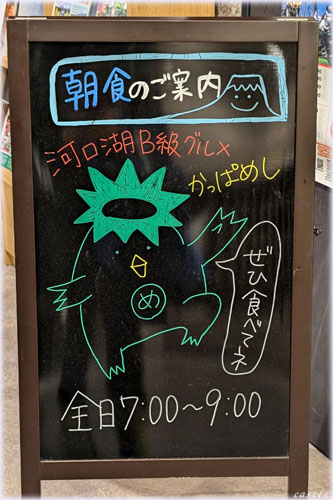 朝食のご案内
河口湖B級グルメ
かっぱめし
め
ぜひ食べてネ
全日7:00~9:00